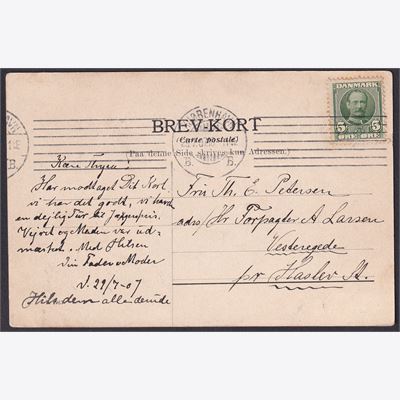 DANMARK
5 5
ØRE ØRE
KØBENHAVN
B.
BREV-KORT
(Carte postale)
(Paa denne Side skrives kun Adressen.)
Kære Thyra!
Har modtaget Dit Kort.
vi har det godt, vi havde
en dejlig Tur til
Vejret og Maden var ud-
mærket. Med Hilsen
din Fader o Moder
d. 29/7-07
Hils dem alle derude
Fru Th. E. Petersen
adrs/ Hr Forpagter A Larsen
Vesteregede
pr Haslev St.